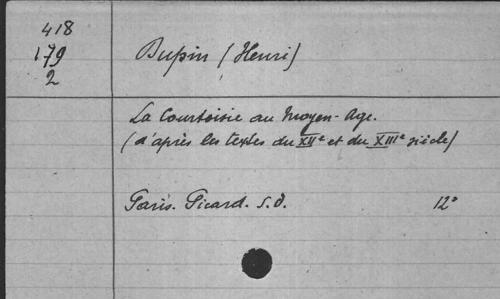 418
179
2
Dupin (Henri)
La Courtoisie au Moyen-Age.
(d'après les textes du XIIe et du XIIIe siècle)
Paris. Picard. S.d.
12°